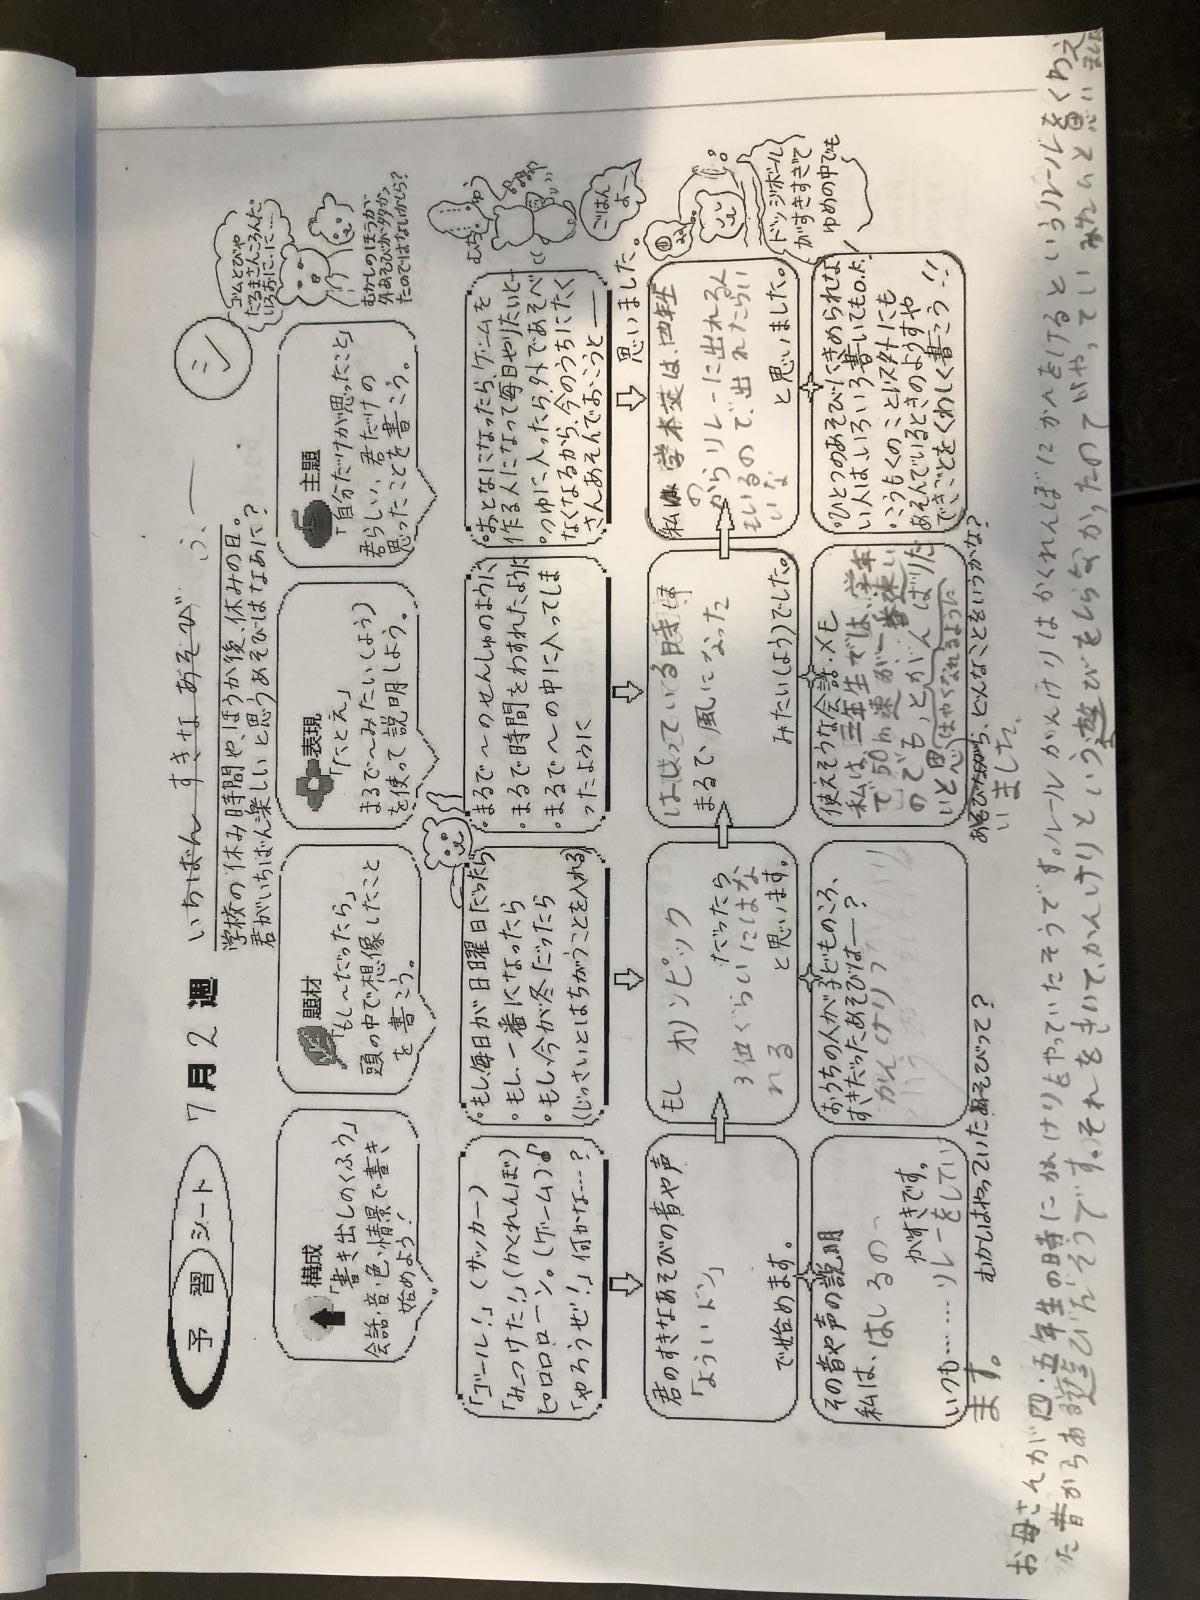 予習シート 7月2週
いちばんすきなあそび
シ
学校の休み時間や、ほうか後、休みの日。
君がいちばん楽しいと思うあそびはなあに？
ゴムとびや
だるまさんころんだ。
いろおに…に……
むかしのほうが、
外あそびが多かっ
たのではないかしら？
構成
「書き出しのくふう」
会話・音・色・情景で書き
始めよう！
題材
「もし～だったら」
頭の中で想像したこと
を書こう。
表現
「たとえ」
まるで～みたい（しょう）
を使って説明しよう。
主題
「自分だけが思ったこと」
君らしい、君だけの
思ったことを書こう。
「ゴール！」（サッカー）
「みーつけた！」（かくれんぼ）
ピロロローン。（ゲーム）
「やろうぜ！」何かな…？
・もし、毎日が日曜日だったら
・もし、一番になったら
・もし、今が冬だったら
（じっさいとはちがうことを入れる）
・まるで～のせんしゅのように
・まるで時間をわすれたように
・まるで～の中に入ってしま
ったように
・おとなになったら、ゲームを
作る人になって毎日やりたいと―
・つゆに入ったら、外であそべ
なくなるから、今のうちにたく
さんあそんでおこうと――
思いました。
ごはん
よー
君のすきなあそびの音や声
「よういドン」
で始めます。
もし オリンピック
だったら
3位ぐらいにはな
れる
と思います。
はしっている時は
まるで、風になった
みたい（しょう）でした。
私の学校では、四年生
からリレーに出れる人
いるので、出れたらい
いな
と思いました。
ドッジボール
がすきすぎて
ゆめの中でも
その音や声の説明
私は、はしるの
がすきです。
いつも……リレーをしてい
ます。
おうちの人が子どものころ、
すきだったあそびは――？
かんけり
むかしはやっていたあそびって？
使えそうな会話・メモ
私は、三年生では、学年
で50m速が一番速い
のでもっとがんばりた
いと思
（はやくなれるように）
いました。
あそびながら、どんなことをいうかな？
・ひとつのあそびにきめられな
い人は、いろいろ書いてもO.K.
・こうもくのこと以外にも
あそんでいるときのようすや
できごとをくわしく書こう！！
お母さんが四・五年生の時にかんけりをやっていたそうです。ルールかんけりはかくれんぼにかんをけるというルールをくわえ
た昔からある遊びだそうです。それをきいて、かんけりという遊びをしらなかったのでいやってみたいと思いました